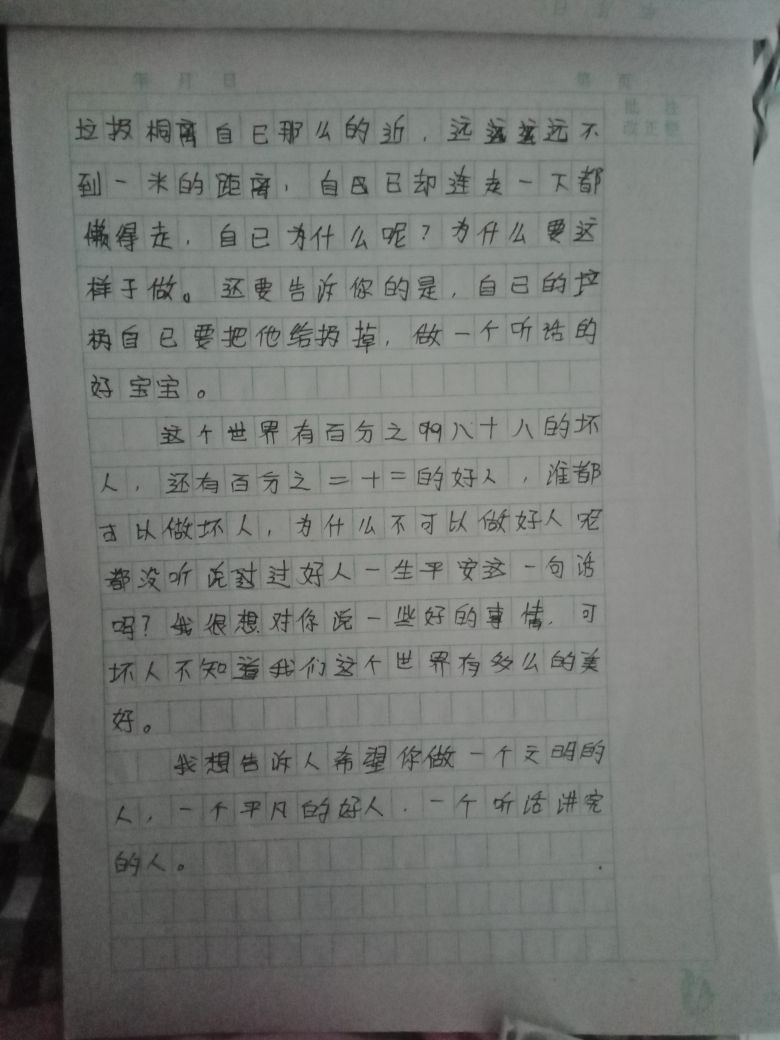 年 月 日 第 页
批 注
垃扱桐离自已那么的近，远远远远不 改正栏
到一米的距离，自已已却连走一下都
懒得走，自已为什么呢？为什么要这
样于做。还要告诉你的是，自已的垃
扱自已要把他给扔掉，做一个听话的
好宝宝。
这个世界有百分之99八十八的坏
人，还有百分之二十二的好人，谁都
可以做坏人，为什么不可以做好人呢
都没听说过过好人一生平安这一句话
吗？我很想对你说一些好的事情，可
坏人不知道我们这个世界有多么的美
好。
我想告诉人希望你做一个文明的
人，一个平凡的好人，一个听话讲究
的人。